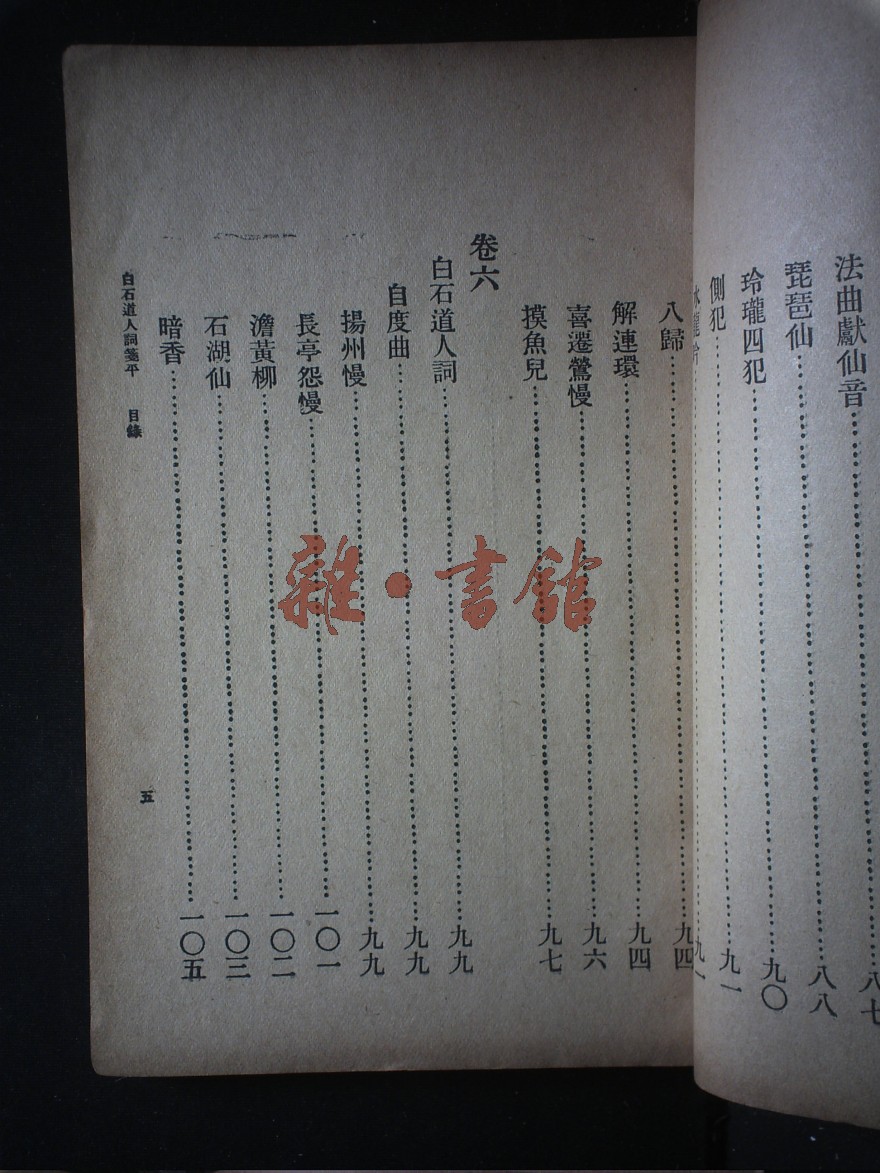 法曲獻仙音⋯⋯八七
琵琶仙⋯⋯八八
玲瓏四犯⋯⋯九〇
側犯⋯⋯九一
八歸⋯⋯九四
解連環⋯⋯九四
喜遷鶯慢⋯⋯九六
摸魚兒⋯⋯九七
卷六
白石道人詞⋯⋯九九
自度曲⋯⋯九九
揚州慢⋯⋯九九
長亭怨慢⋯⋯一〇一
澹黃柳⋯⋯一〇二
石湖仙⋯⋯一〇三
暗香⋯⋯一〇五
白石道人詞箋平 目錄
五
雜·書館